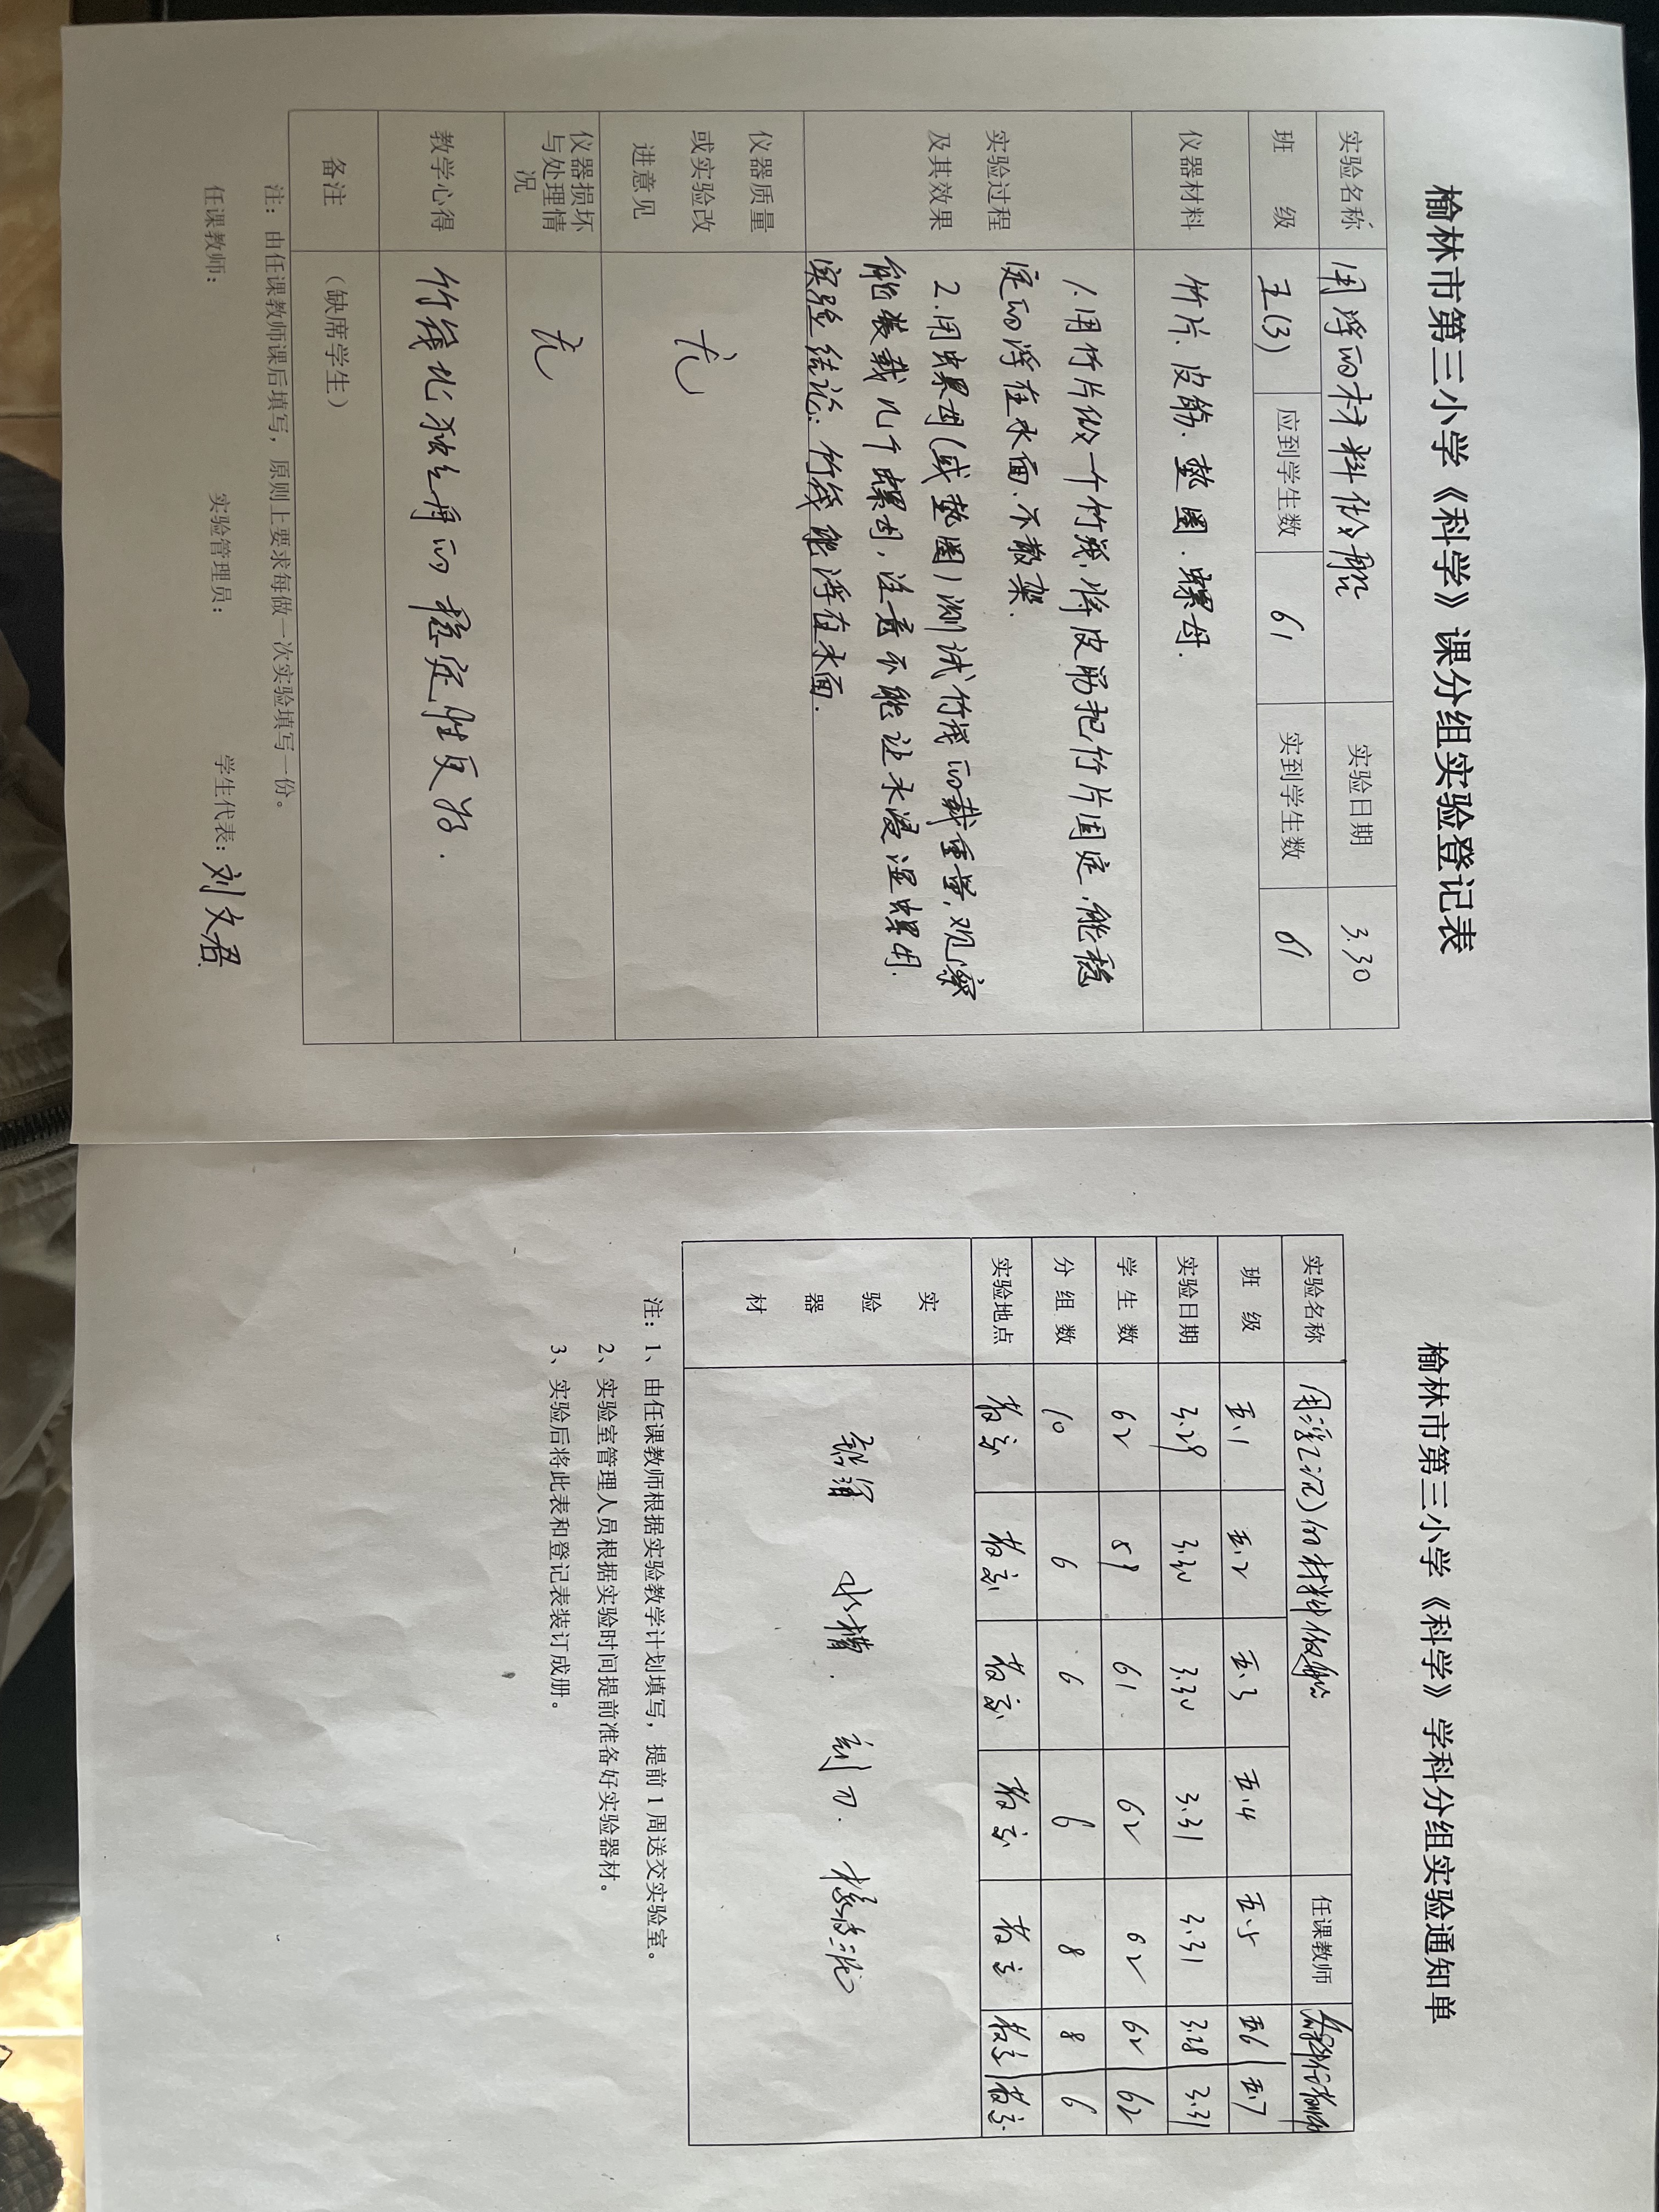 榆林市第三小学《科学》课分组实验登记表
实验名称 用浮的材料做船 实验日期 3.30
班 级 五(3) 应到学生数 61 实到学生数 61
仪器材料 竹片、皮筋、垫圈、螺母.
实验过程及其效果
1.用竹片做一个竹筏,将皮筋把竹片固定,能稳
定的浮在水面、不散架.
2.用螺母(或垫圈)测试竹筏的载重量,观察
能装载几个螺母,注意不能让水浸湿螺母.
实验结论:竹筏能浮在水面.
仪器质量或实验改进意见 无
仪器损坏与处理情况 无
教学心得 竹筏比独木舟的稳定性更好.
备注 (缺席学生)
注:由任课教师课后填写,原则上要求每做一次实验填写一份。
任课教师: 实验管理员: 学生代表:刘文君
榆林市第三小学《科学》学科分组实验通知单
实验名称 用浮(沉)的材料做船 任课教师
班 级 五.1 五.2 五.3 五.4 五.5 五.6 五.7
实验日期 3.29 3.30 3.30 3.31 3.31 3.28 3.31
学生数 62 59 61 62 62 62 62
分组数 10 6 6 6 8 8 6
实验地点 教室 教室 教室 教室 教室 教室 教室
实验器材 水槽. 剪刀. 橡皮泥
注:1、由任课教师根据实验教学计划填写,提前1周送交实验室。
2、实验室管理人员根据实验时间提前准备好实验器材。
3、实验后将此表和登记表装订成册。